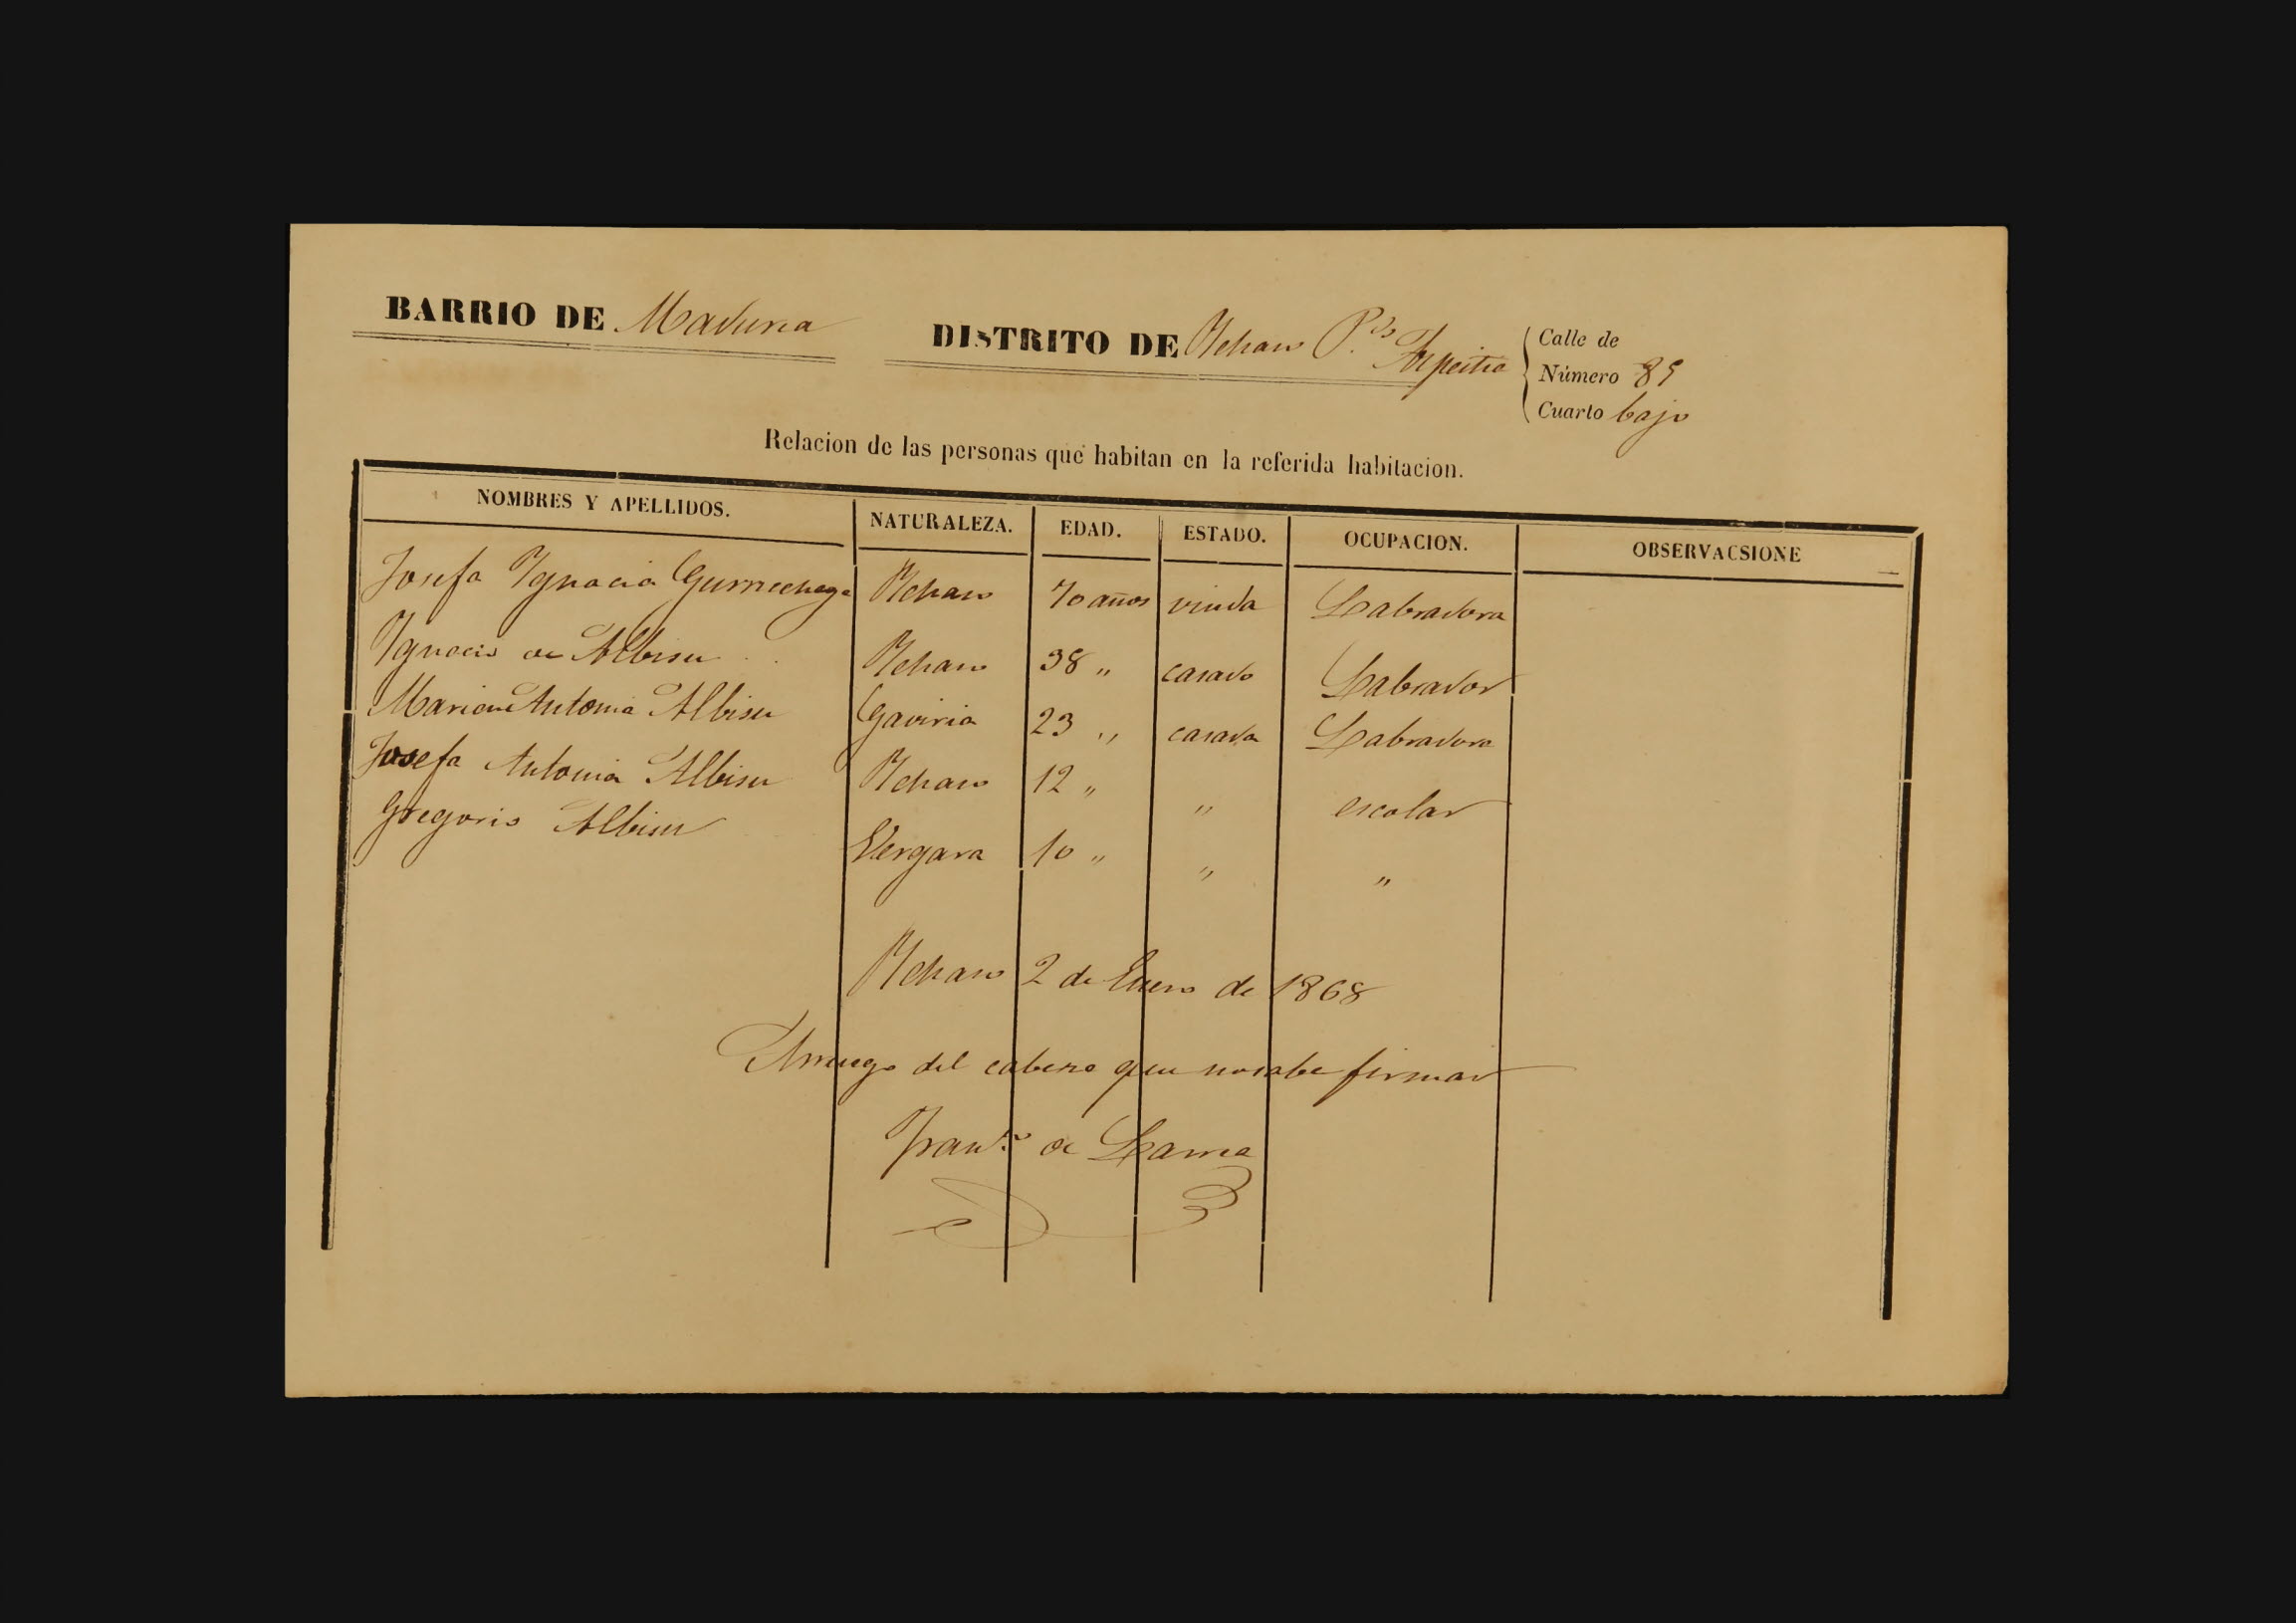 BARRIO DE Maduria
DISTRITO DE Ychaso P.do Azpeitia
Calle de
Número 89
Cuarto bajo
Relacion de las personas que habitan en la referida habitacion.
NOMBRES Y APELLIDOS. NATURALEZA. EDAD. ESTADO. OCUPACION. OBSERVACSIONE
Josefa Ygnacia Gurruchaga Ychaso 70 años viuda Labradora
Ygnacio de Albisu Ychaso 38 " casado Labrador
Maria Antonia Albisu Gaviria 23 " casada Labradora
Josefa Antonia Albisu Ychaso 12 " " escolar
Gregorio Albisu Vergara 10 " " "
Ychaso 2 de Enero de 1868
Arruego del cabeza que no sabe firmar
Fran.co de Larrea